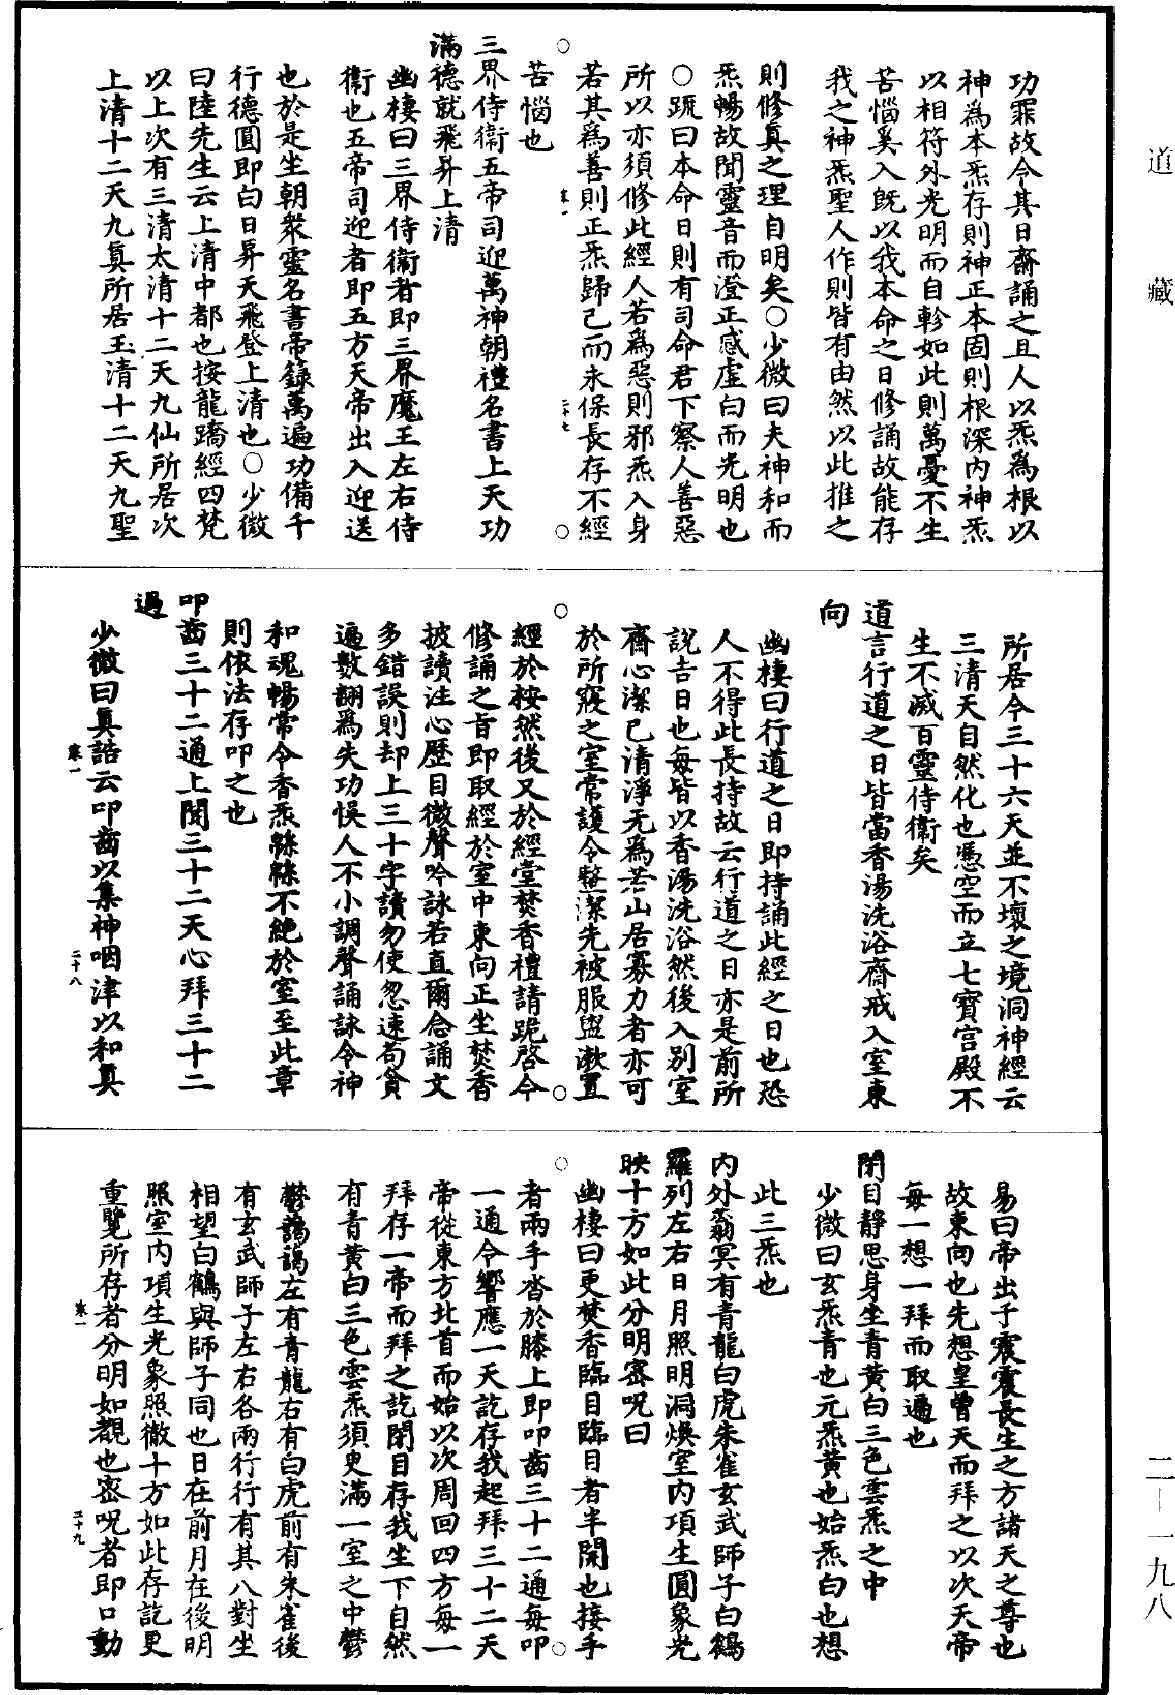 道藏
功罪故今其日齋誦之且人以炁爲根以
神爲本炁存則神正本固則根深内神炁
以相符外光明而自軫如此則萬憂不生
苦惱奚入旣以我本命之日修誦故能存
我之神炁聖人作則皆有由然以此推之
則修真之理自明矣○少微曰夫神和而
炁暢故聞靈音而澄正感虛白而光明也
○䟽曰本命日則有司命君下察人善惡
所以亦須修此經人若爲惡則邪炁入身
若其爲善則正炁歸己而永保長存不經
卷一
二十七
苦惱也
三界侍衞五帝司迎萬神朝禮名書上天功
滿德就飛昇上清
幽棲曰三界侍衞者即三界魔王左右侍
衞也五帝司迎者即五方天帝出入迎送
也於是坐朝衆靈名書帝籙萬遍功備千
行德圓即白日昇天飛登上清也○少微
曰陸先生云上清中都也按龍蹻經四梵
以上次有三清太清十二天九仙所居次
上清十二天九真所居玉清十二天九聖
所居今三十六天並不壞之境洞神經云
三清天自然化也憑空而立七寶宮殿不
生不滅百靈侍衞矣
道言行道之日皆當香湯洗浴齋戒入室東
向
幽棲曰行道之日即持誦此經之日也恐
人不得此長持故云行道之日亦是前所
說吉日也每皆以香湯洗浴然後入別室
齋心潔己清淨无爲若山居寡力者亦可
於所寢之室常護令整潔先被服盥漱置
經於桉然後又於經堂焚香禮請跪啓今
修誦之旨即取經於室中東向正坐焚香
披讀注心歷目微聲吟詠若直爾念誦文
多錯誤則却上三十字讀勿使忽速苟貪
遍數翻爲失功悮人不小調聲誦詠令神
和魂暢常令香炁緜緜不絶於室至此章
則依法存叩之也
叩齒三十二通上聞三十二天心拜三十二
過
少微曰真誥云叩齒以集神咽津以和真
卷一
二十八
易曰帝出于震震長生之方諸天之尊也
故東向也先想皇曾天而拜之以次天帝
每一想一拜而取遍也
閉目靜思身坐青黃白三色雲炁之中
少微曰玄炁青也元炁黃也始炁白也想
此三炁也
内外蓊冥有青龍白虎朱雀玄武師子白鶴
羅列左右日月照明洞煥室内項生圓象光
映十方如此分明密呪曰
幽棲曰更焚香臨目臨目者半開也接手
者兩手沓於膝上即叩齒三十二通每叩
一通令響應一天訖存我起拜三十二天
帝從東方北首而始以次周回四方每一
拜存一帝而拜之訖閉目存我坐下自然
有青黃白三色雲炁須臾滿一室之中鬱
鬱藹藹左有青龍右有白虎前有朱雀後
有玄武師子左右各兩行行有其八對坐
相望白鶴與師子同也日在前月在後明
照室内項生光象照徹十方如此存訖更
重覽所存者分明如覩也密呪者即口動
卷一
二十九
二-一九八